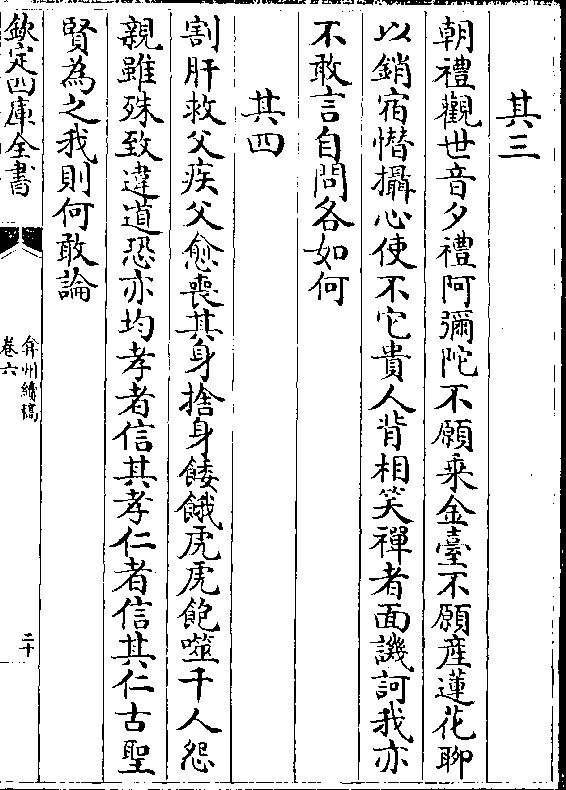 其三
朝禮觀世音夕禮阿彌陀不願乘金臺不願産蓮花聊
以銷宿憯攝心使不它貴人背相笑禪者面譏訶我亦
不敢言自問各如何
其四
割肝救父疾父愈喪其身捨身餧餓虎虎飽噬千人怨
親雖殊致違道恐亦均孝者信其孝仁者信其仁古聖
賢為之我則何敢論
欽定四庫全書
弇州續稿
卷六
二十